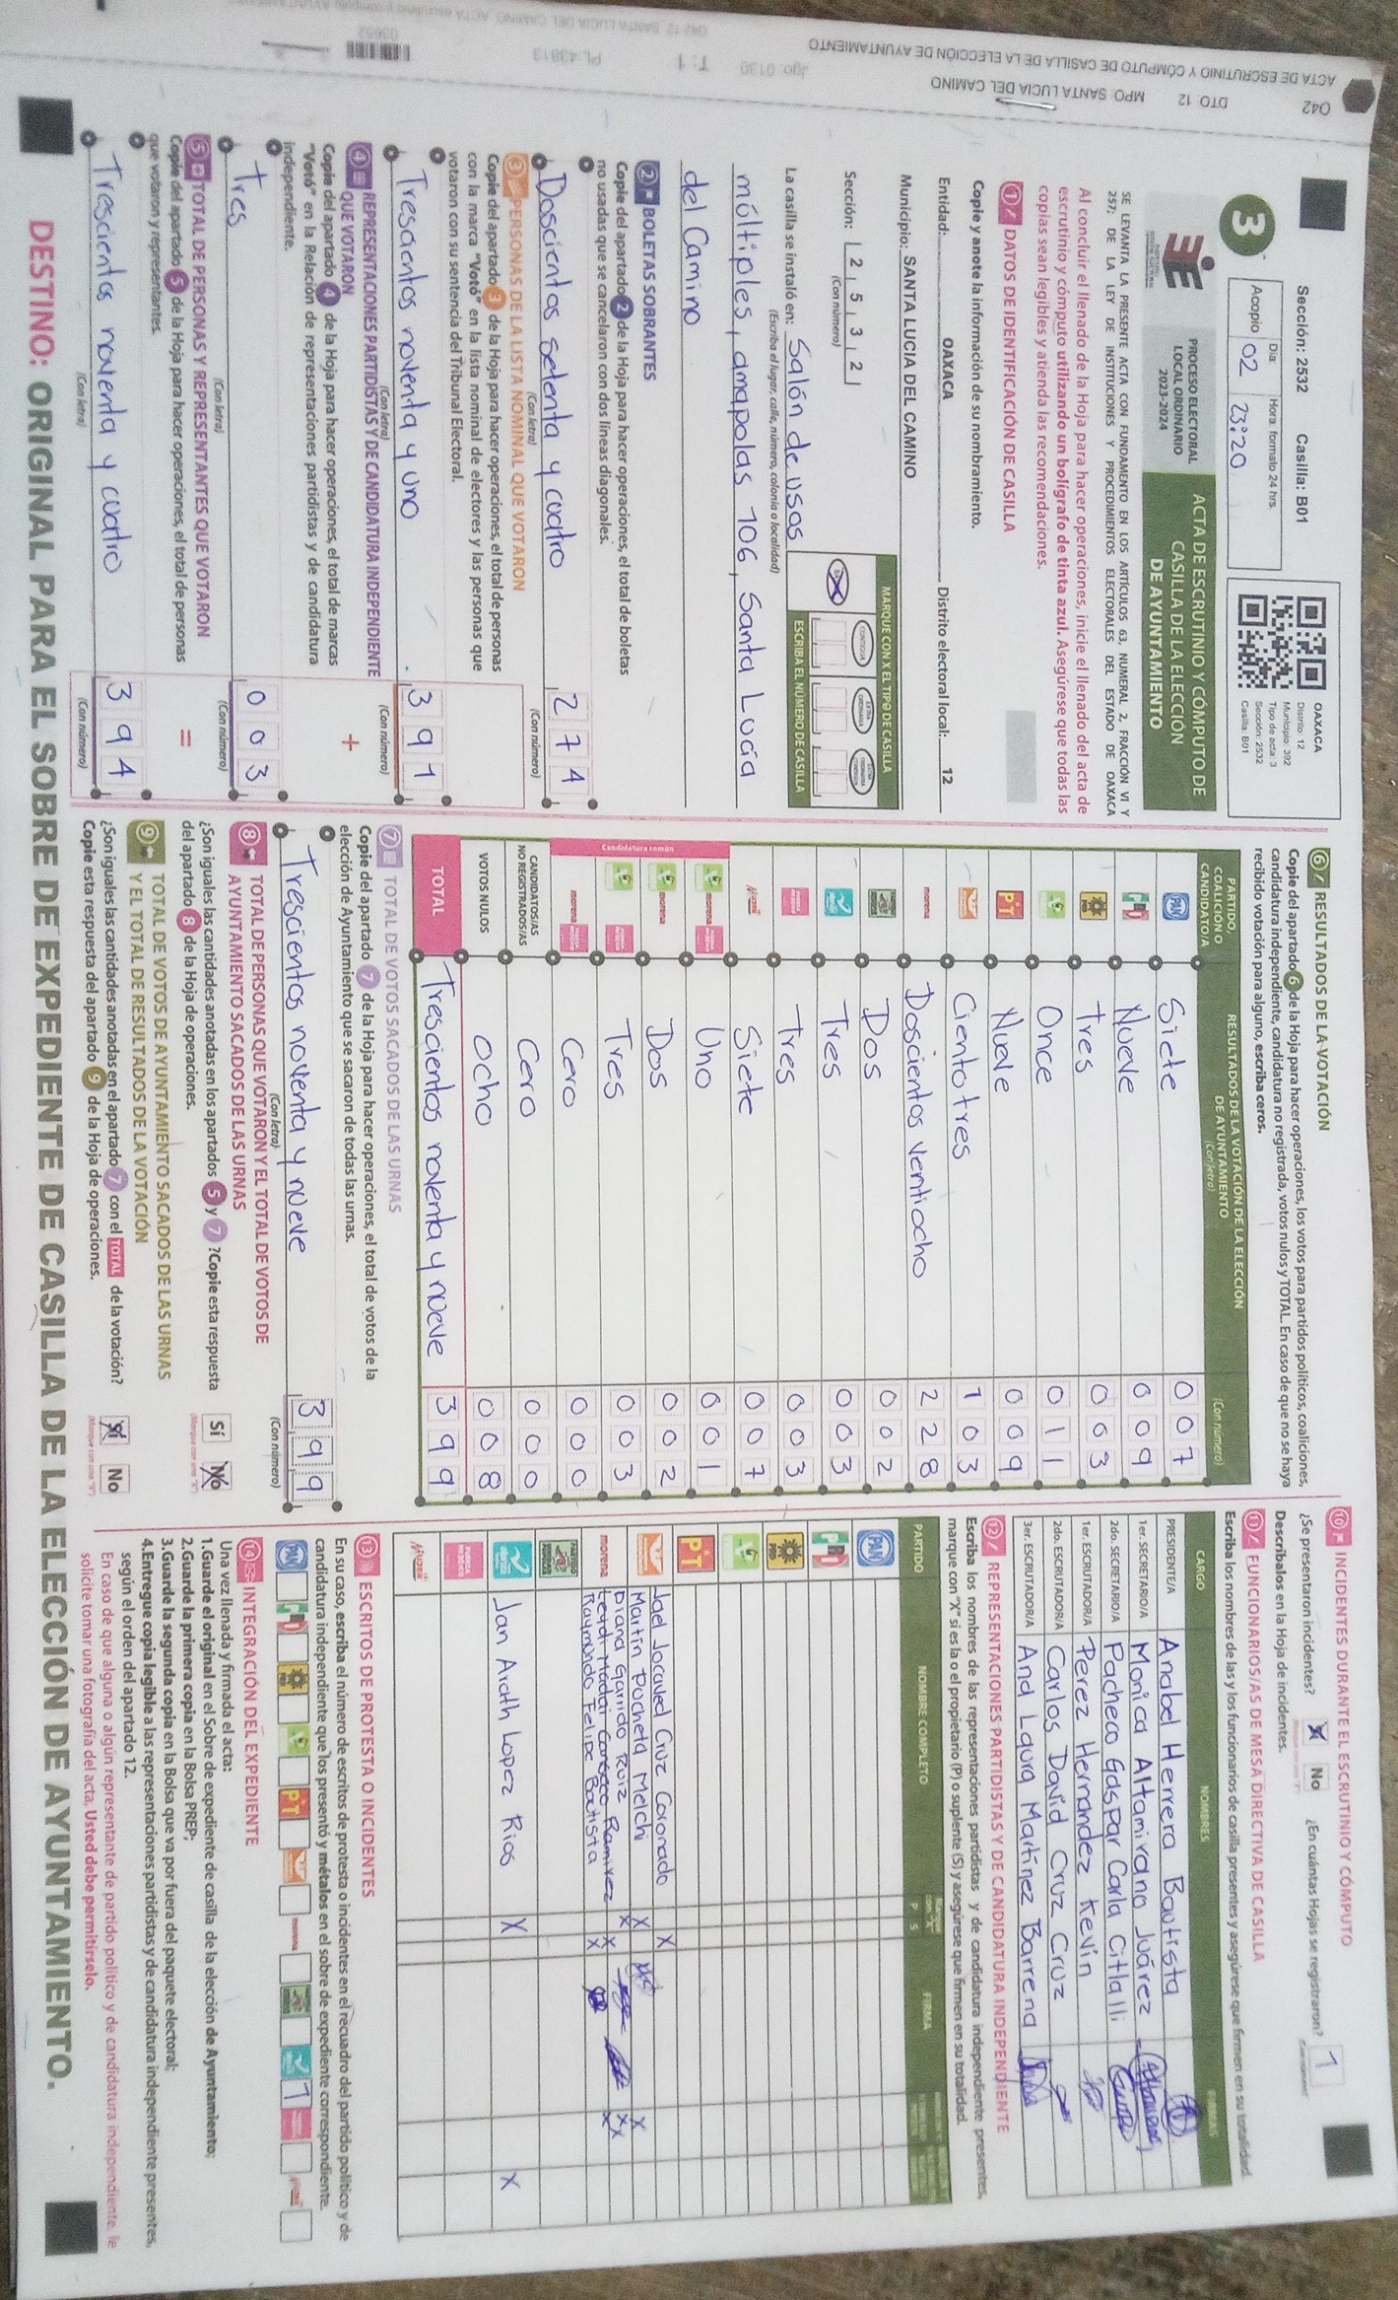 ACTA DE ESCRUTINIO Y CÓMPUTO DE CASILLA DE LA ELECCIÓN DE AYUNTAMIENTO
042 DTO 12 MPO SANTA LUCIA DEL CAMINO
Sección: 2532 Casilla: B01
3
Acopio
Día:
02
Hora: formato 24 hrs.
23:20
OAXACA
Distrito: 12
Municipio: 392
Tipo de acta: 3
Sección: 2532
Casilla: B01
PROCESO ELECTORAL
LOCAL ORDINARIO
2023-2024
ACTA DE ESCRUTINIO Y CÓMPUTO DE
CASILLA DE LA ELECCIÓN
DE AYUNTAMIENTO
SE LEVANTA LA PRESENTE ACTA CON FUNDAMENTO EN LOS ARTÍCULOS 63, NUMERAL 2, FRACCIÓN VI Y
257; DE LA LEY DE INSTITUCIONES Y PROCEDIMIENTOS ELECTORALES DEL ESTADO DE OAXACA
Al concluir el llenado de la Hoja para hacer operaciones, inicie el llenado del acta de
escrutinio y cómputo utilizando un bolígrafo de tinta azul. Asegúrese que todas las
copias sean legibles y atienda las recomendaciones.
1 DATOS DE IDENTIFICACIÓN DE CASILLA
Copie y anote la información de su nombramiento.
Entidad: OAXACA Distrito electoral local: 12
Municipio: SANTA LUCIA DEL CAMINO
Sección: 2 5 3 2
(Con número)
MARQUE CON X EL TIPO DE CASILLA
ESCRIBA EL NÚMERO DE CASILLA
La casilla se instaló en: Salón de usos
(Escriba el lugar, calle, número, colonia o localidad)
móltiples, amapolas 106, Santa Lucía
del Camino
2 BOLETAS SOBRANTES
Copie del apartado 2 de la Hoja para hacer operaciones, el total de boletas
no usadas que se cancelaron con dos líneas diagonales.
Doscientos setenta y cuatro 2 7 4
(Con letra) (Con número)
3 PERSONAS DE LA LISTA NOMINAL QUE VOTARON
Copie del apartado 3 de la Hoja para hacer operaciones, el total de personas
con la marca "Votó" en la lista nominal de electores y las personas que
votaron con su sentencia del Tribunal Electoral.
Trescientos noventa y uno 3 9 1
(Con letra) (Con número)
4 REPRESENTACIONES PARTIDISTAS Y DE CANDIDATURA INDEPENDIENTE
QUE VOTARON
Copie del apartado 4 de la Hoja para hacer operaciones, el total de marcas
"Votó" en la Relación de representaciones partidistas y de candidatura
independiente.
+
Tres 0 0 3
(Con letra) (Con número)
5 TOTAL DE PERSONAS Y REPRESENTANTES QUE VOTARON
Copie del apartado 5 de la Hoja para hacer operaciones, el total de personas
que votaron y representantes.
=
Trescientos noventa y cuatro 3 9 4
(Con letra) (Con número)
6 RESULTADOS DE LA VOTACIÓN
Copie del apartado 6 de la Hoja para hacer operaciones, los votos para partidos políticos, coaliciones,
candidatura independiente, candidatura no registrada, votos nulos y TOTAL. En caso de que no se haya
recibido votación para alguno, escriba ceros.
PARTIDO, COALICIÓN O CANDIDATO/A
RESULTADOS DE LA VOTACIÓN DE LA ELECCIÓN DE AYUNTAMIENTO
(Con letra) (Con número)
PAN Siete 0 0 7
PRI Nueve 0 0 9
PRD Tres 0 0 3
Once 0 1 1
PT Nueve 0 0 9
Ciento tres 1 0 3
morena Doscientos ventiocho 2 2 8
Dos 0 0 2
Tres 0 0 3
Tres 0 0 3
Siete 0 0 7
Candidatura común
morena Uno 0 0 1
morena Dos 0 0 2
Tres 0 0 3
morena Cero 0 0 0
CANDIDATOS/AS NO REGISTRADOS/AS Cero 0 0 0
VOTOS NULOS Ocho 0 0 8
TOTAL Trescientos noventa y nueve 3 9 9
7 TOTAL DE VOTOS SACADOS DE LAS URNAS
Copie del apartado 7 de la Hoja para hacer operaciones, el total de votos de la
elección de Ayuntamiento que se sacaron de todas las urnas.
Trescientos noventa y nueve 3 9 9
(Con letra) (Con número)
8 TOTAL DE PERSONAS QUE VOTARON Y EL TOTAL DE VOTOS DE
AYUNTAMIENTO SACADOS DE LAS URNAS
¿Son iguales las cantidades anotadas en los apartados 5 y 7 ? Copie esta respuesta
del apartado 8 de la Hoja de operaciones.
Sí No
9 TOTAL DE VOTOS DE AYUNTAMIENTO SACADOS DE LAS URNAS
Y EL TOTAL DE RESULTADOS DE LA VOTACIÓN
¿Son iguales las cantidades anotadas en el apartado 7 con el TOTAL de la votación?
Copie esta respuesta del apartado 9 de la Hoja de operaciones.
Sí No
10 INCIDENTES DURANTE EL ESCRUTINIO Y CÓMPUTO
¿Se presentaron incidentes? Sí No ¿En cuántas Hojas se registraron? 1
Descríbalos en la Hoja de incidentes.
11 FUNCIONARIOS/AS DE MESA DIRECTIVA DE CASILLA
Escriba los nombres de las y los funcionarios de casilla presentes y asegúrese que firmen en su totalidad.
CARGO NOMBRES FIRMAS
PRESIDENTE/A Anabel Herrera Bautista
1er. SECRETARIO/A Monica Altamirano Juárez
2do. SECRETARIO/A Pacheco Gaspar Carla Citlalli
1er. ESCRUTADOR/A Perez Hernandez Kevin
2do. ESCRUTADOR/A Carlos David Cruz Cruz
3er. ESCRUTADOR/A Ana Laura Martinez Barrena
12 REPRESENTACIONES PARTIDISTAS Y DE CANDIDATURA INDEPENDIENTE
Escriba los nombres de las representaciones partidistas y de candidatura independiente presentes,
marque con "X" si es la o el propietario (P) o suplente (S) y asegúrese que firmen en su totalidad.
PARTIDO NOMBRE COMPLETO P S FIRMA
PAN
PRI
PRD
PT
Jael Jocavel Cruz Coronado X
Martín Pacheta Melchi X X
Diana Garrido Ruiz X X
morena
Raymundo Felipe Bautista X
Jan Arath Lopez Rios X X
13 ESCRITOS DE PROTESTA O INCIDENTES
En su caso, escriba el número de escritos de protesta o incidentes en el recuadro del partido político y de
candidatura independiente que los presentó y métalos en el sobre de expediente correspondiente.
PAN PRI PRD PT morena 1
14 INTEGRACIÓN DEL EXPEDIENTE
Una vez llenada y firmada el acta:
1.Guarde el original en el Sobre de expediente de casilla de la elección de Ayuntamiento;
2.Guarde la primera copia en la Bolsa PREP;
3.Guarde la segunda copia en la Bolsa que va por fuera del paquete electoral;
4.Entregue copia legible a las representaciones partidistas y de candidatura independiente presentes,
según el orden del apartado 12.
En caso de que alguna o algún representante de partido político y de candidatura independiente, le
solicite tomar una fotografía del acta, Usted debe permitírselo.
DESTINO: ORIGINAL PARA EL SOBRE DE EXPEDIENTE DE CASILLA DE LA ELECCIÓN DE AYUNTAMIENTO.